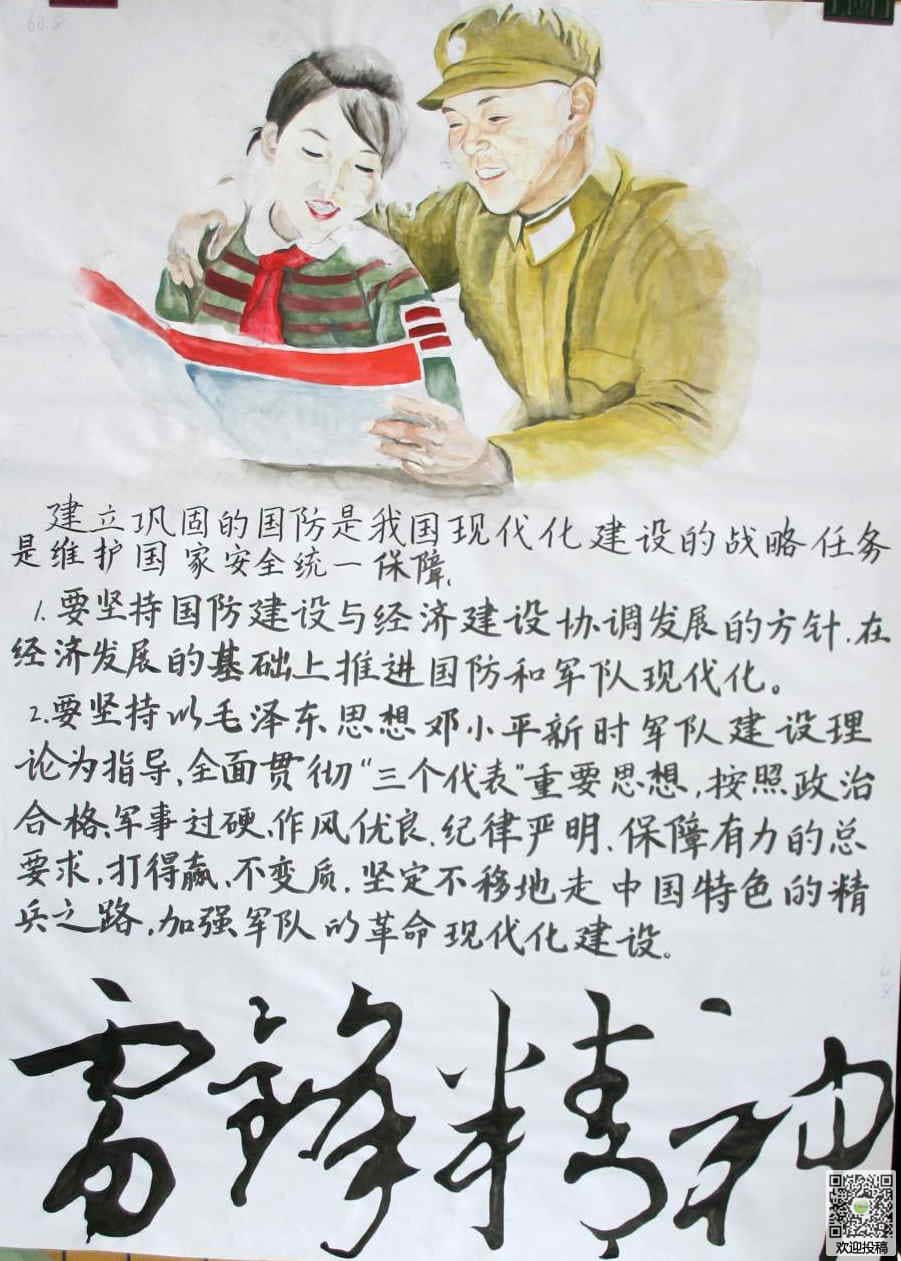 建立巩固的国防是我国现代化建设的战略任务
是维护国家安全统一保障,
1.要坚持国防建设与经济建设协调发展的方针.在
经济发展的基础上推进国防和军队现代化。
2.要坚持以毛泽东思想邓小平新时军队建设理
论为指导,全面贯彻“三个代表”重要思想,按照政治
合格、军事过硬、作风优良.纪律严明.保障有力的总
要求,打得赢、不变质.坚定不移地走中国特色的精
兵之路,加强军队的革命现代化建设。
雷锋精神
欢迎投稿